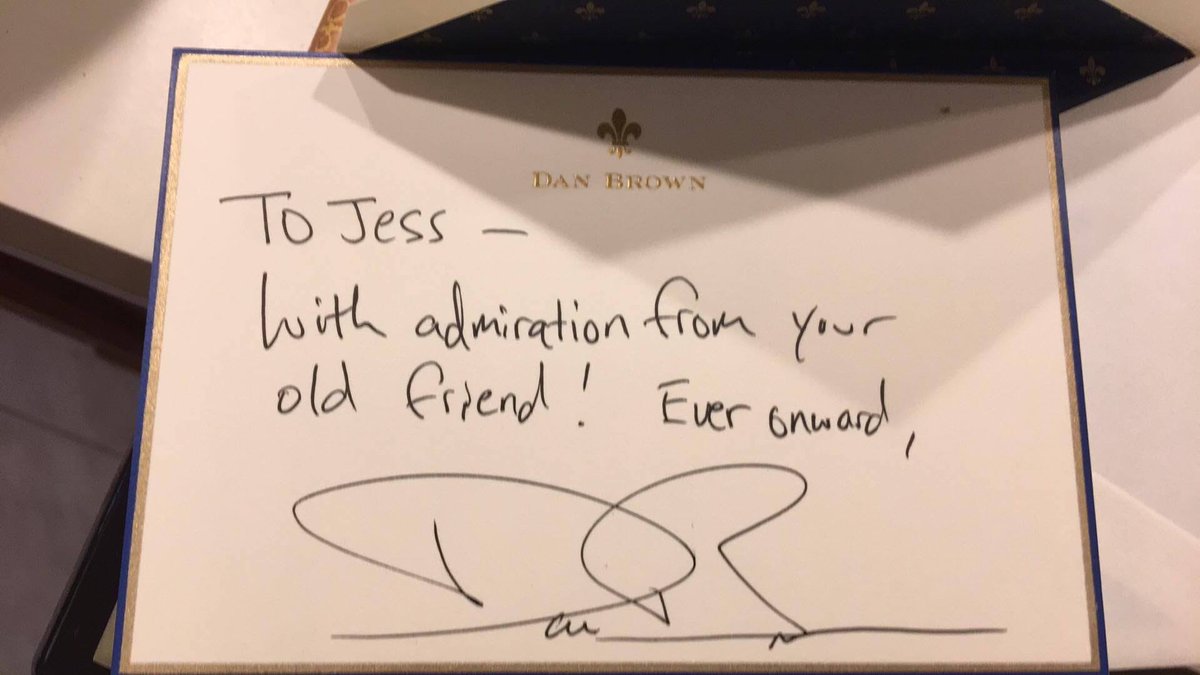 DAN BROWN
To Jess —
With admiration from your
old friend! Ever onward,